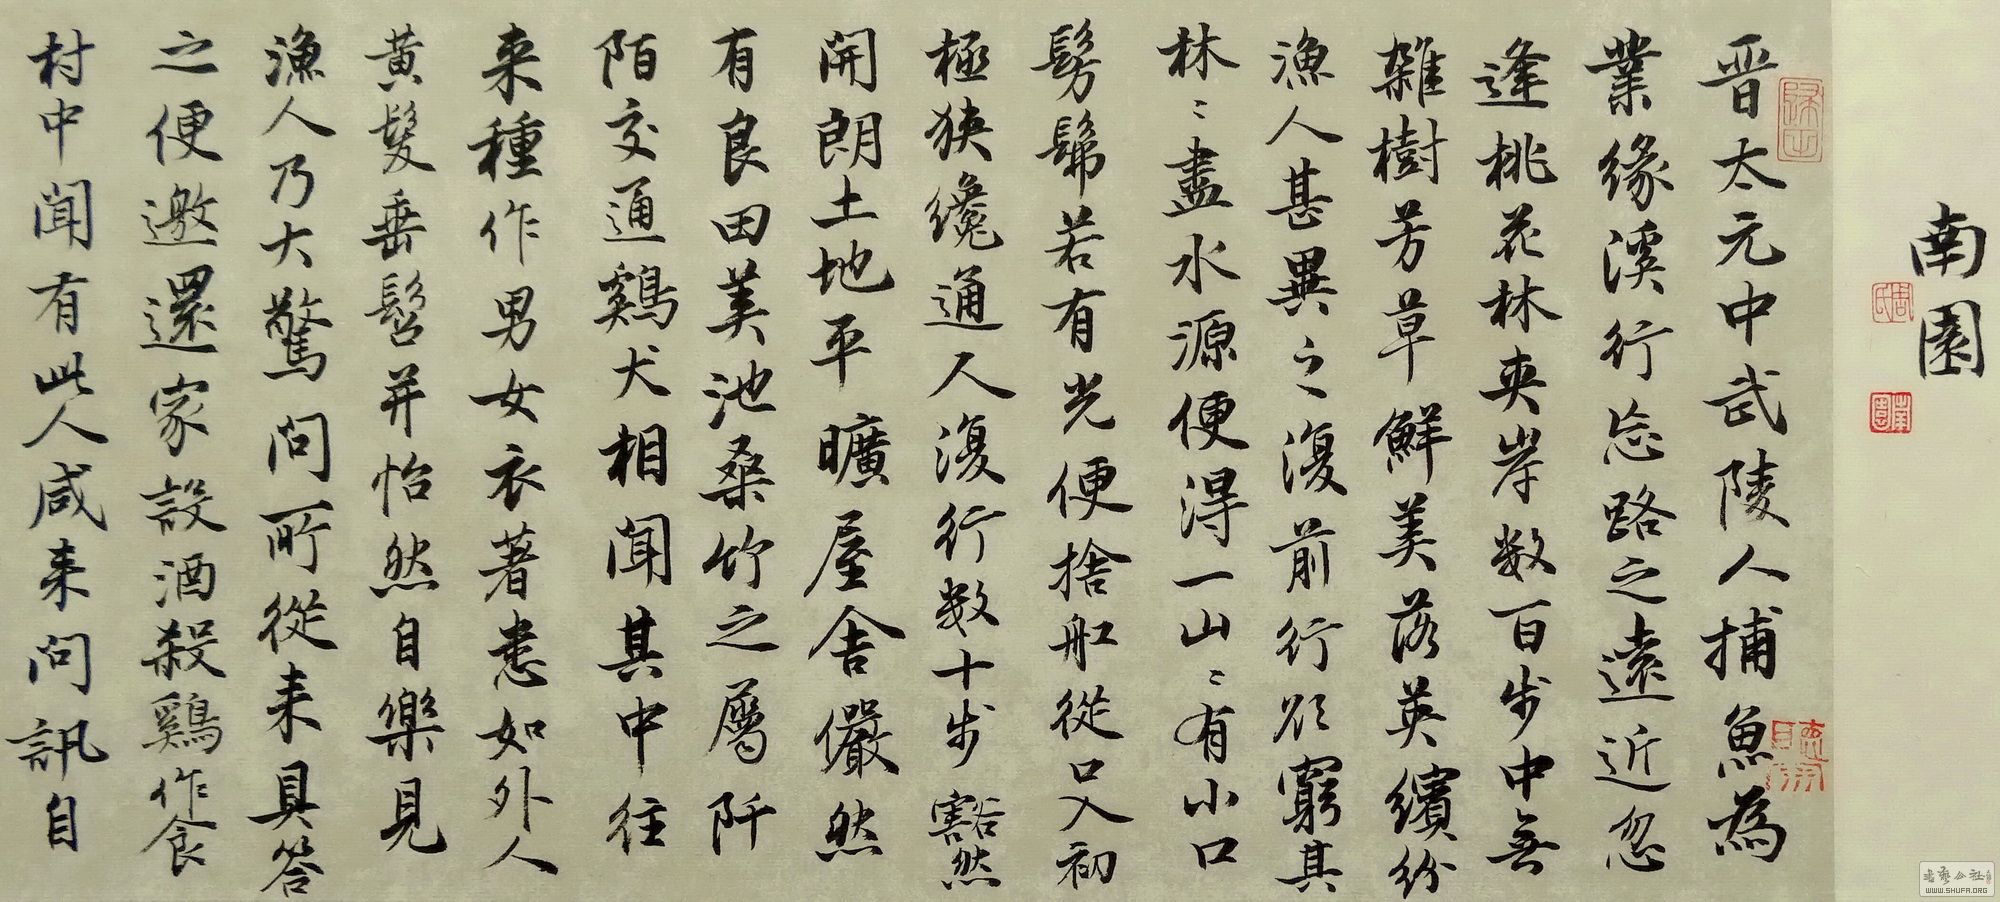 南園
晋太元中武陵人捕魚為
業緣溪行忘路之遠近忽
逢桃花林夾岸数百步中無
雜樹芳草鮮美落英繽紛
漁人甚異之復前行欲窮其
林〻盡水源便得一山〻有小口
髣髴若有光便捨船從口入初
極狹纔通人復行数十步豁然
開朗土地平曠屋舍儼然
有良田美池桑竹之屬阡
陌交通鷄犬相聞其中往
来種作男女衣著悉如外人
黃髮垂髫并怡然自樂見
漁人乃大驚問所從来具答
之便邀還家設酒殺鷄作食
村中聞有此人咸来問訊自
周氏
南園
WWW.SHUFA.ORG